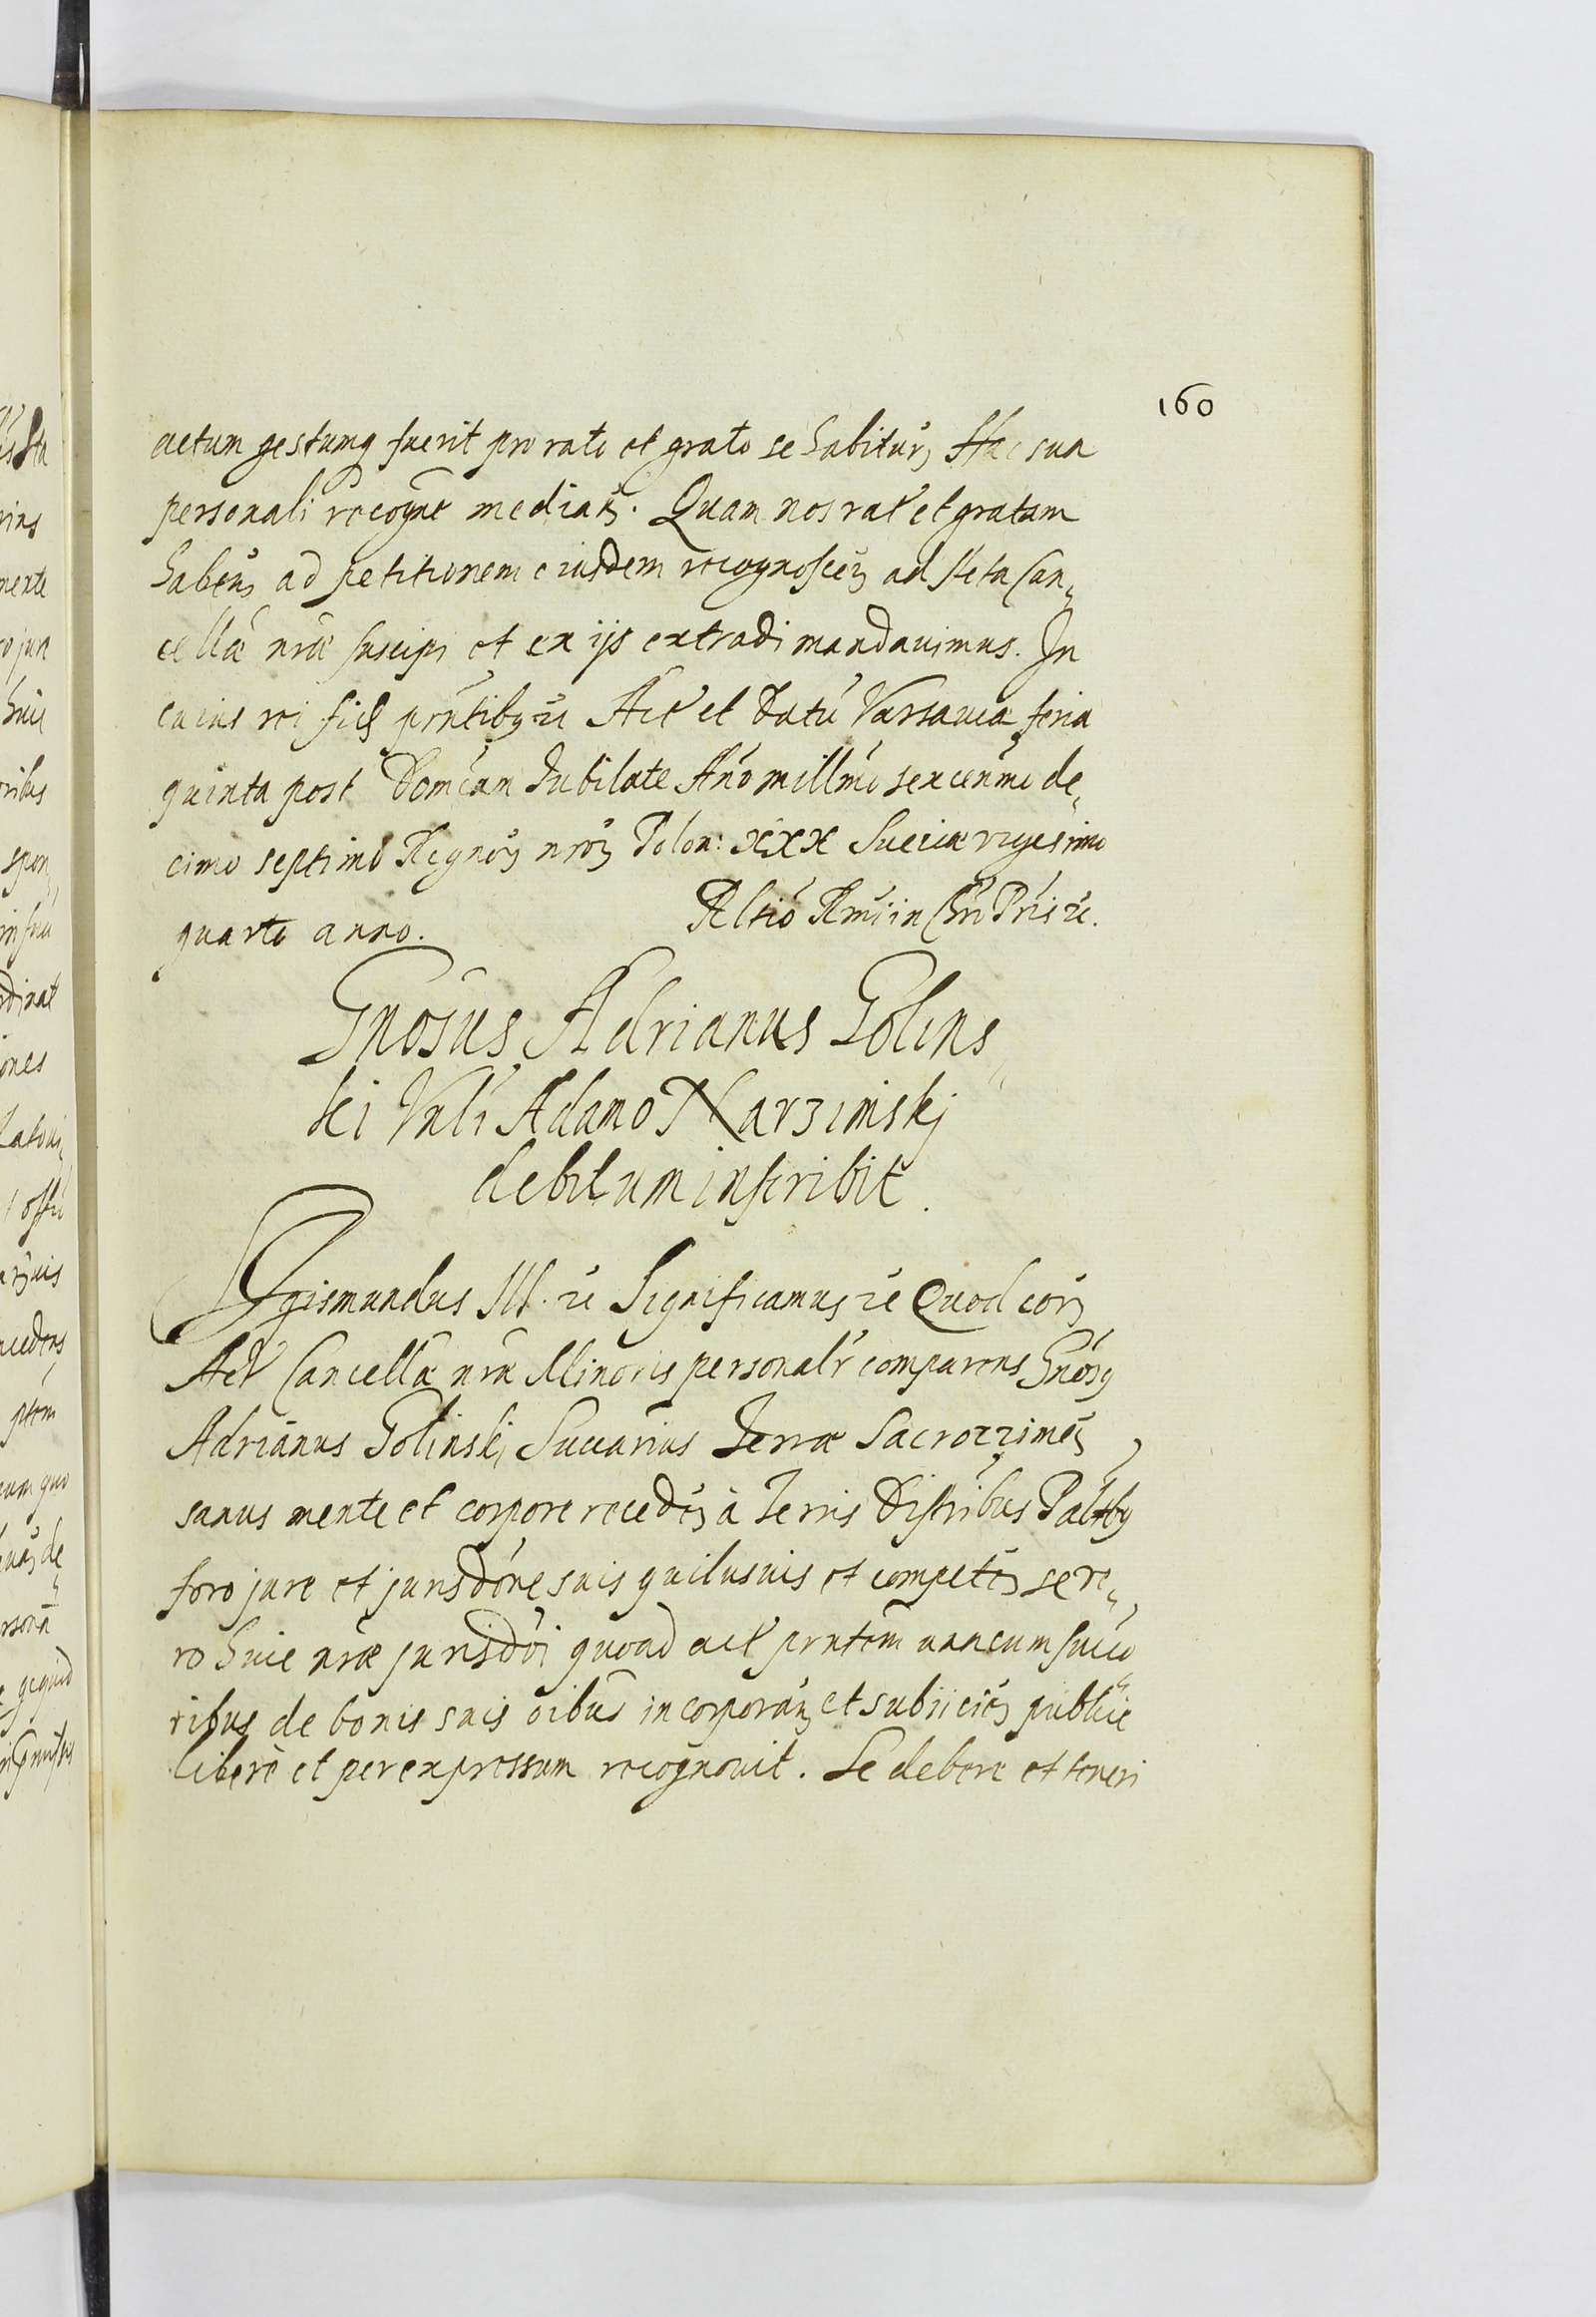 160
actum gestumq fuerit pro rato et grato se habitur, Hac sua
personali recogne median. Quam nos rat et gratam
haben, ad petitionem eiusdem recognoscen, ad Acta Can„
cellæ nræ suscipi et ex ijs extradi mandauimus. In
cuius rei fid, prntibq etc Act et Datū Varsauiæ feria
quinta post Domcam Iubilate Ano millmo sexcenmo de„
cimo septimo Regnor, nror, Polon: XXX Sueciæ vigesimo
quarto anno.
Reltio Rmi in Chri Pris etc.
Gnosus Adrianus Golins„
ki Nli Adamo Narzimskj
debitum inscribit.
Sigismundus III. etc Significamus etc Quod cor,
Act Cancellæ nræ Minoris personalr comparens Gnosq
Adrianus Golinskj Succarius Terræ Sacroczimen,
sanus mente et corpore receden, à Terris Distribus Paltbq
foro jure et jurisdone suis quibusuis et competen, se ve„
ro huic nræ jurisdoi quoad act prntem unacum succo„
ribus de bonis suis oibus incorporan, et subijcien, publice
liberè et per expressum recognouit. Se debere et teneri